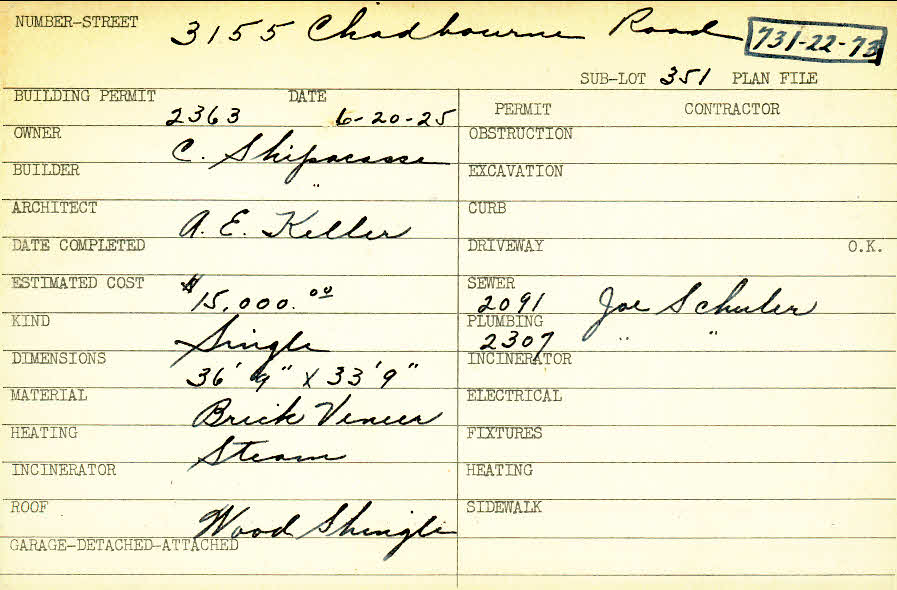 NUMBER-STREET 3155 Chadbourne Road 731-22-73
SUB-LOT 351 PLAN FILE
BUILDING PERMIT 2363 DATE 6-20-25
PERMIT CONTRACTOR
OWNER C. Shipacasse
OBSTRUCTION
BUILDER "
EXCAVATION
ARCHITECT A. E. Keller
CURB
DATE COMPLETED
DRIVEWAY O.K.
ESTIMATED COST $15,000.00
SEWER 2091 Joe Schuler
KIND Single
PLUMBING 2307 " "
DIMENSIONS 36' 9" X 33' 9"
INCINERATOR
MATERIAL Brick Veneer
ELECTRICAL
HEATING Steam
FIXTURES
INCINERATOR
HEATING
ROOF Wood Shingle
SIDEWALK
GARAGE-DETACHED-ATTACHED